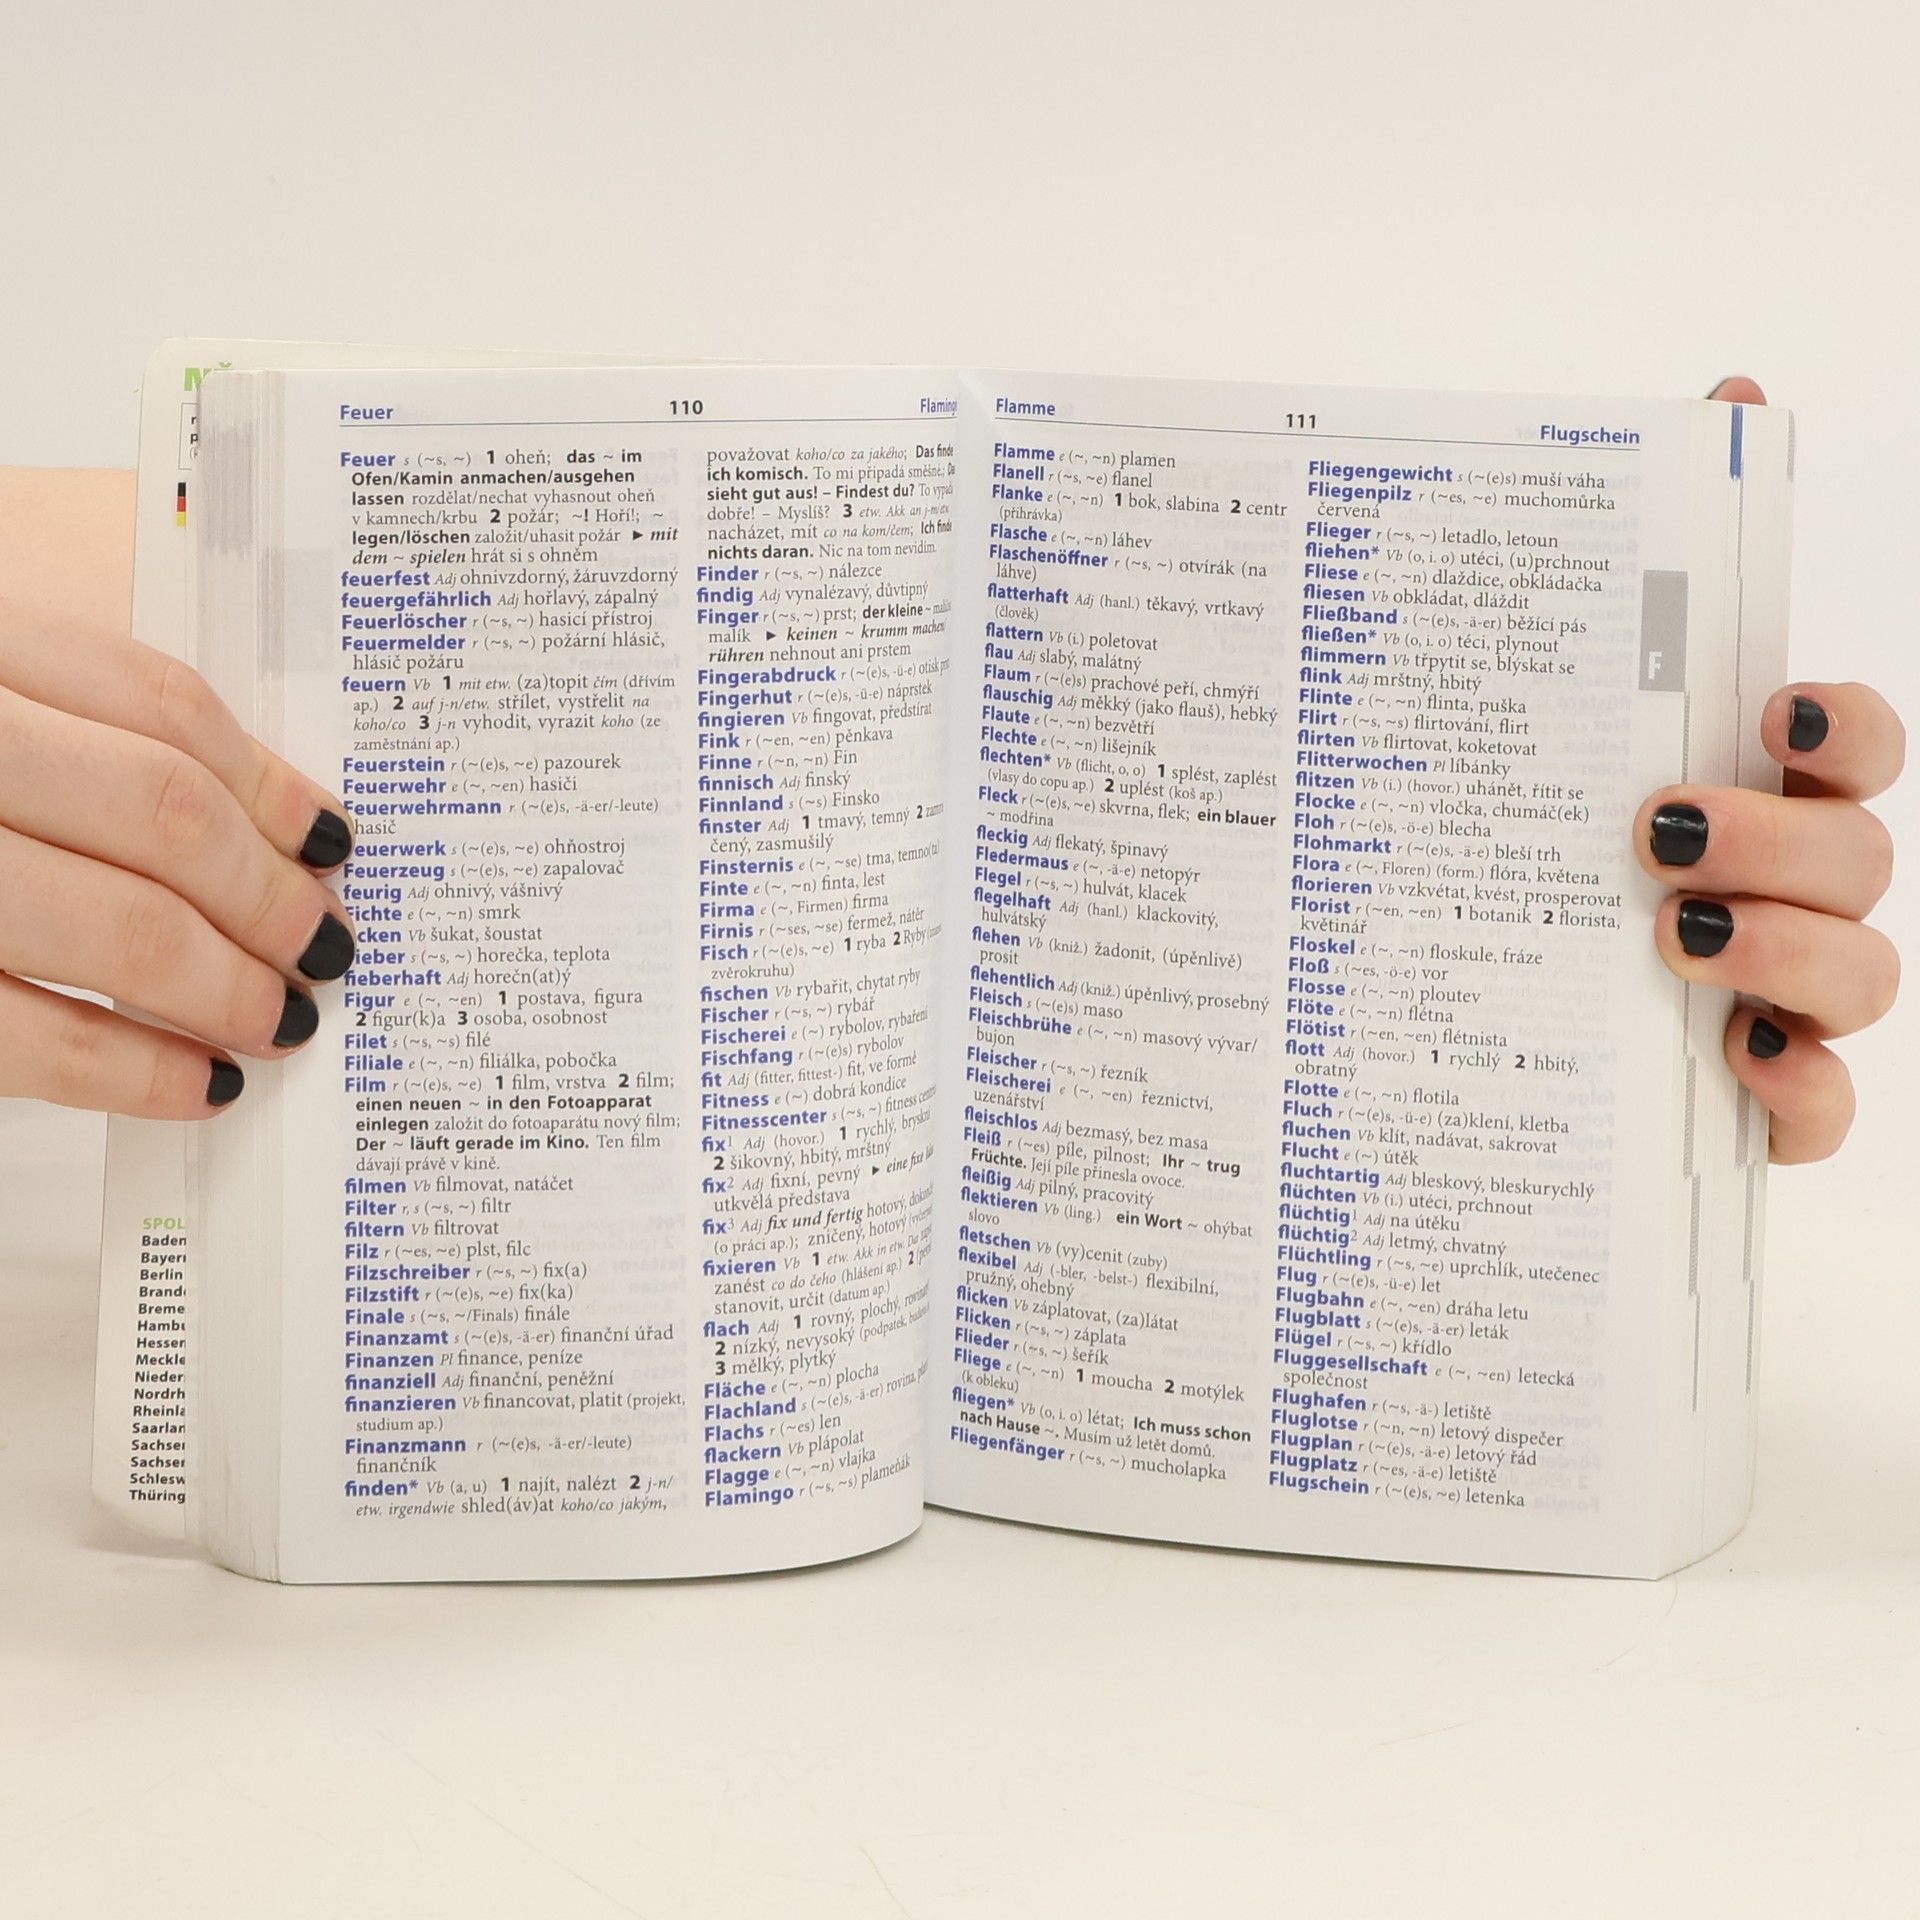 Feuer 110
Feuer s (~s, ~) 1 oheň; das ~ im
Ofen/Kamin anmachen/ausgehen
lassen rozdělat/nechat vyhasnout oheň
v kamnech/krbu 2 požár; ~! Hoří!; ~
legen/löschen založit/uhasit požár ► mit
dem ~ spielen hrát si s ohněm
feuerfest Adj ohnivzdorný, žáruvzdorný
feuergefährlich Adj hořlavý, zápalný
Feuerlöscher r (~s, ~) hasicí přístroj
Feuermelder r (~s, ~) požární hlásič,
hlásič požáru
feuern Vb 1 mit etw. (za)topit čím (dřívím
ap.) 2 auf j-n/etw. střílet, vystřelit na
koho/co 3 j-n vyhodit, vyrazit koho (ze
zaměstnání ap.)
Feuerstein r (~(e)s, ~e) pazourek
Feuerwehr e (~, ~en) hasiči
Feuerwehrmann r (~(e)s, -ä-er/-leute)
hasič
euerwerk s (~(e)s, ~e) ohňostroj
Feuerzeug s (~(e)s, ~e) zapalovač
feurig Adj ohnivý, vášnivý
Fichte e (~, ~n) smrk
cken Vb šukat, šoustat
ieber s (~s, ~) horečka, teplota
fieberhaft Adj horečn(at)ý
Figur e (~, ~en) 1 postava, figura
2 figur(k)a 3 osoba, osobnost
Filet s (~s, ~s) filé
Filiale e (~, ~n) filiálka, pobočka
Film r (~(e)s, ~e) 1 film, vrstva 2 film;
einen neuen ~ in den Fotoapparat
einlegen založit do fotoaparátu nový film;
Der ~ läuft gerade im Kino. Ten film
dávají právě v kině.
filmen Vb filmovat, natáčet
Filter r, s (~s, ~) filtr
filtern Vb filtrovat
Filz r (~es, ~e) plst, filc
Filzschreiber r (~s, ~) fix(a)
Filzstift r (~(e)s, ~e) fix(ka)
Finale s (~s, ~/Finals) finále
Finanzamt s (~(e)s, -ä-er) finanční úřad
Finanzen Pl finance, peníze
finanziell Adj finanční, peněžní
finanzieren Vb financovat, platit (projekt,
studium ap.)
Finanzmann r (~(e)s, -ä-er/-leute)
finančník
finden* Vb (a, u) 1 najít, nalézt 2 j-n/
etw. irgendwie shled(áv)at koho/co jakým,
považovat koho/co za jakého; Das
ich komisch. To mi připadá směšné;
sieht gut aus! – Findest du? To
dobře! – Myslíš? 3 etw. Akk an
nacházet, mít co na kom/čem; Ich
nichts daran. Nic na tom nevidím.
Finder r (~s, ~) nálezce
findig Adj vynalézavý, důvtipný
Finger r (~s, ~) prst; der kleine ~
malík ► keinen ~ krumm machen/
rühren nehnout ani prstem
Fingerabdruck r (~(e)s, -ü-e) otisk
Fingerhut r (~(e)s, -ü-e) náprstek
fingieren Vb fingovat, předstírat
Fink r (~en, ~en) pěnkava
Finne r (~n, ~n) Fin
finnisch Adj finský
Finnland s (~s) Finsko
finster Adj 1 tmavý, temný 2
čený, zasmušilý
Finsternis e (~, ~se) tma, temno(ta)
Finte e (~, ~n) finta, lest
Firma e (~, Firmen) firma
Firnis r (~ses, ~se) fermež, nátěr
Fisch r (~(e)s, ~e) 1 ryba 2 Ryby
zvěrokruhu)
fischen Vb rybařit, chytat ryby
Fischer r (~s, ~) rybář
Fischerei e (~) rybolov, rybaření
Fischfang r (~(e)s) rybolov
fit Adj (fitter, fittest-) fit, ve formě
Fitness e (~) dobrá kondice
Fitnesscenter s (~s, ~) fitness
fix¹ Adj (hovor.) 1 rychlý,
2 šikovný, hbitý, mrštný
fix² Adj fixní, pevný ► eine fixe
utkvělá představa
fix³ Adj fix und fertig hotový,
(o práci ap.); zničený, hotový
fixieren Vb 1 etw. Akk in etw.
zanést co do čeho (hlášení ap.) 2
stanovit, určit (datum ap.)
flach Adj 1 rovný, plochý,
2 nízký, nevysoký (podpatek,
3 mělký, plytký
Fläche e (~, ~n) plocha
Flachland s (~(e)s, -ä-er) rovina,
Flachs r (~es) len
flackern Vb plápolat
Flagge e (~, ~n) vlajka
Flamingo r (~s, ~s) plameňák
Flamme 111 Flugschein
Flamme e (~, ~n) plamen
Flanell r (~s, ~e) flanel
Flanke e (~, ~n) 1 bok, slabina 2 centr
(přihrávka)
Flasche e (~, ~n) láhev
Flaschenöffner r (~s, ~) otvírák (na
láhve)
flatterhaft Adj (hanl.) těkavý, vrtkavý
(člověk)
flattern Vb (i.) poletovat
flau Adj slabý, malátný
Flaum r (~(e)s) prachové peří, chmýří
flauschig Adj měkký (jako flauš), hebký
Flaute e (~, ~n) bezvětří
Flechte e (~, ~n) lišejník
flechten* Vb (flicht, o, o) 1 splést, zaplést
(vlasy do copu ap.) 2 uplést (koš ap.)
Fleck r (~(e)s, ~e) skvrna, flek; ein blauer
~ modřina
fleckig Adj flekatý, špinavý
Fledermaus e (~, -ä-e) netopýr
Flegel r (~s, ~) hulvát, klacek
flegelhaft Adj (hanl.) klackovitý,
hulvátský
flehen Vb (kniž.) žadonit, (úpěnlivě)
prosit
flehentlich Adj (kniž.) úpěnlivý, prosebný
Fleisch s (~(e)s) maso
Fleischbrühe e (~, ~n) masový vývar/
bujon
Fleischer r (~s, ~) řezník
Fleischerei e (~, ~en) řeznictví,
uzenářství
fleischlos Adj bezmasý, bez masa
Fleiß r (~es) píle, pilnost; Ihr ~ trug
Früchte. Její píle přinesla ovoce.
fleißig Adj pilný, pracovitý
flektieren Vb (ling.) ein Wort ~ ohýbat
slovo
fletschen Vb (vy)cenit (zuby)
flexibel Adj (-bler, -belst-) flexibilní,
pružný, ohebný
flicken Vb záplatovat, (za)látat
Flicken r (~s, ~) záplata
Flieder r (~s, ~) šeřík
Fliege e (~, ~n) 1 moucha 2 motýlek
(k obleku)
fliegen* Vb (o, i. o) létat; Ich muss schon
nach Hause ~. Musím už letět domů.
Fliegenfänger r (~s, ~) mucholapka
Fliegengewicht s (~(e)s) muší váha
Fliegenpilz r (~es, ~e) muchomůrka
červená
Flieger r (~s, ~) letadlo, letoun
fliehen* Vb (o, i. o) utéci, (u)prchnout
Fliese e (~, ~n) dlaždice, obkládačka
fliesen Vb obkládat, dláždit
Fließband s (~(e)s, -ä-er) běžící pás
fließen* Vb (o, i. o) téci, plynout
flimmern Vb třpytit se, blýskat se
flink Adj mrštný, hbitý
Flinte e (~, ~n) flinta, puška
Flirt r (~s, ~s) flirtování, flirt
flirten Vb flirtovat, koketovat
Flitterwochen Pl líbánky
flitzen Vb (i.) (hovor.) uhánět, řítit se
Flocke e (~, ~n) vločka, chumáč(ek)
Floh r (~(e)s, -ö-e) blecha
Flohmarkt r (~(e)s, -ä-e) bleší trh
Flora e (~, Floren) (form.) flóra, květena
florieren Vb vzkvétat, kvést, prosperovat
Florist r (~en, ~en) 1 botanik 2 florista,
květinář
Floskel e (~, ~n) floskule, fráze
Floß s (~es, -ö-e) vor
Flosse e (~, ~n) ploutev
Flöte e (~, ~n) flétna
Flötist r (~en, ~en) flétnista
flott Adj (hovor.) 1 rychlý 2 hbitý,
obratný
Flotte e (~, ~n) flotila
Fluch r (~(e)s, -ü-e) (za)klení, kletba
fluchen Vb klít, nadávat, sakrovat
Flucht e (~) útěk
fluchtartig Adj bleskový, bleskurychlý
flüchten Vb (i.) utéci, prchnout
flüchtig¹ Adj na útěku
flüchtig² Adj letmý, chvatný
Flüchtling r (~s, ~e) uprchlík, utečenec
Flug r (~(e)s, -ü-e) let
Flugbahn e (~, ~en) dráha letu
Flugblatt s (~(e)s, -ä-er) leták
Flügel r (~s, ~) křídlo
Fluggesellschaft e (~, ~en) letecká
společnost
Flughafen r (~s, -ä-) letiště
Fluglotse r (~n, ~n) letový dispečer
Flugplan r (~(e)s, -ä-e) letový řád
Flugplatz r (~es, -ä-e) letiště
Flugschein r (~(e)s, ~e) letenka
F
SPOL
Baden
Bayern
Berlin
Brand
Breme
Hambu
Hessen
Meckle
Nieder
Nordrh
Rheinla
Saarlan
Sachsen
Sachsen
Schlesw
Thüring